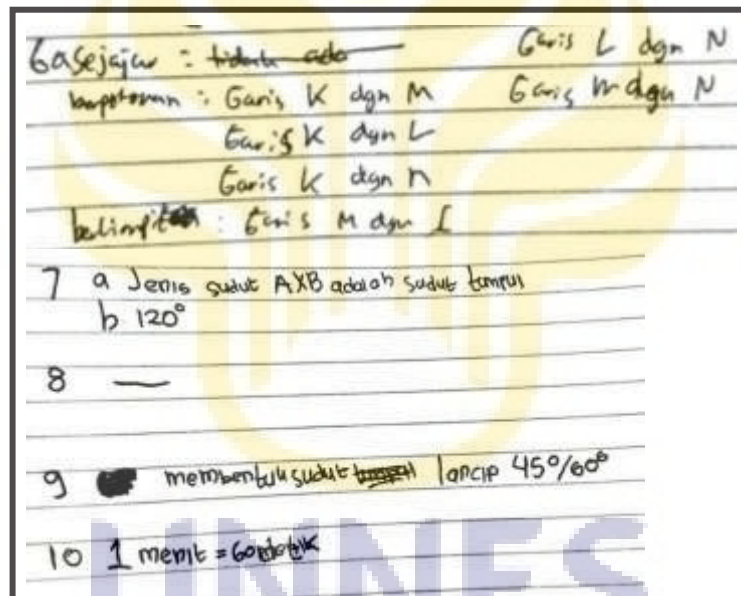 6 a sejajar : tidak ada Garis L dgn N
berpotongan : Garis K dgn M Garis M dgn N
Garis K dgn L
Garis K dgn n
berimpit : Garis M dgn L
7 a Jenis sudut AXB adalah sudut tumpul
b 120°
8 —
9 membentuk sudut lancip 45°/60°
10 1 menit = 60 detik
UNNES